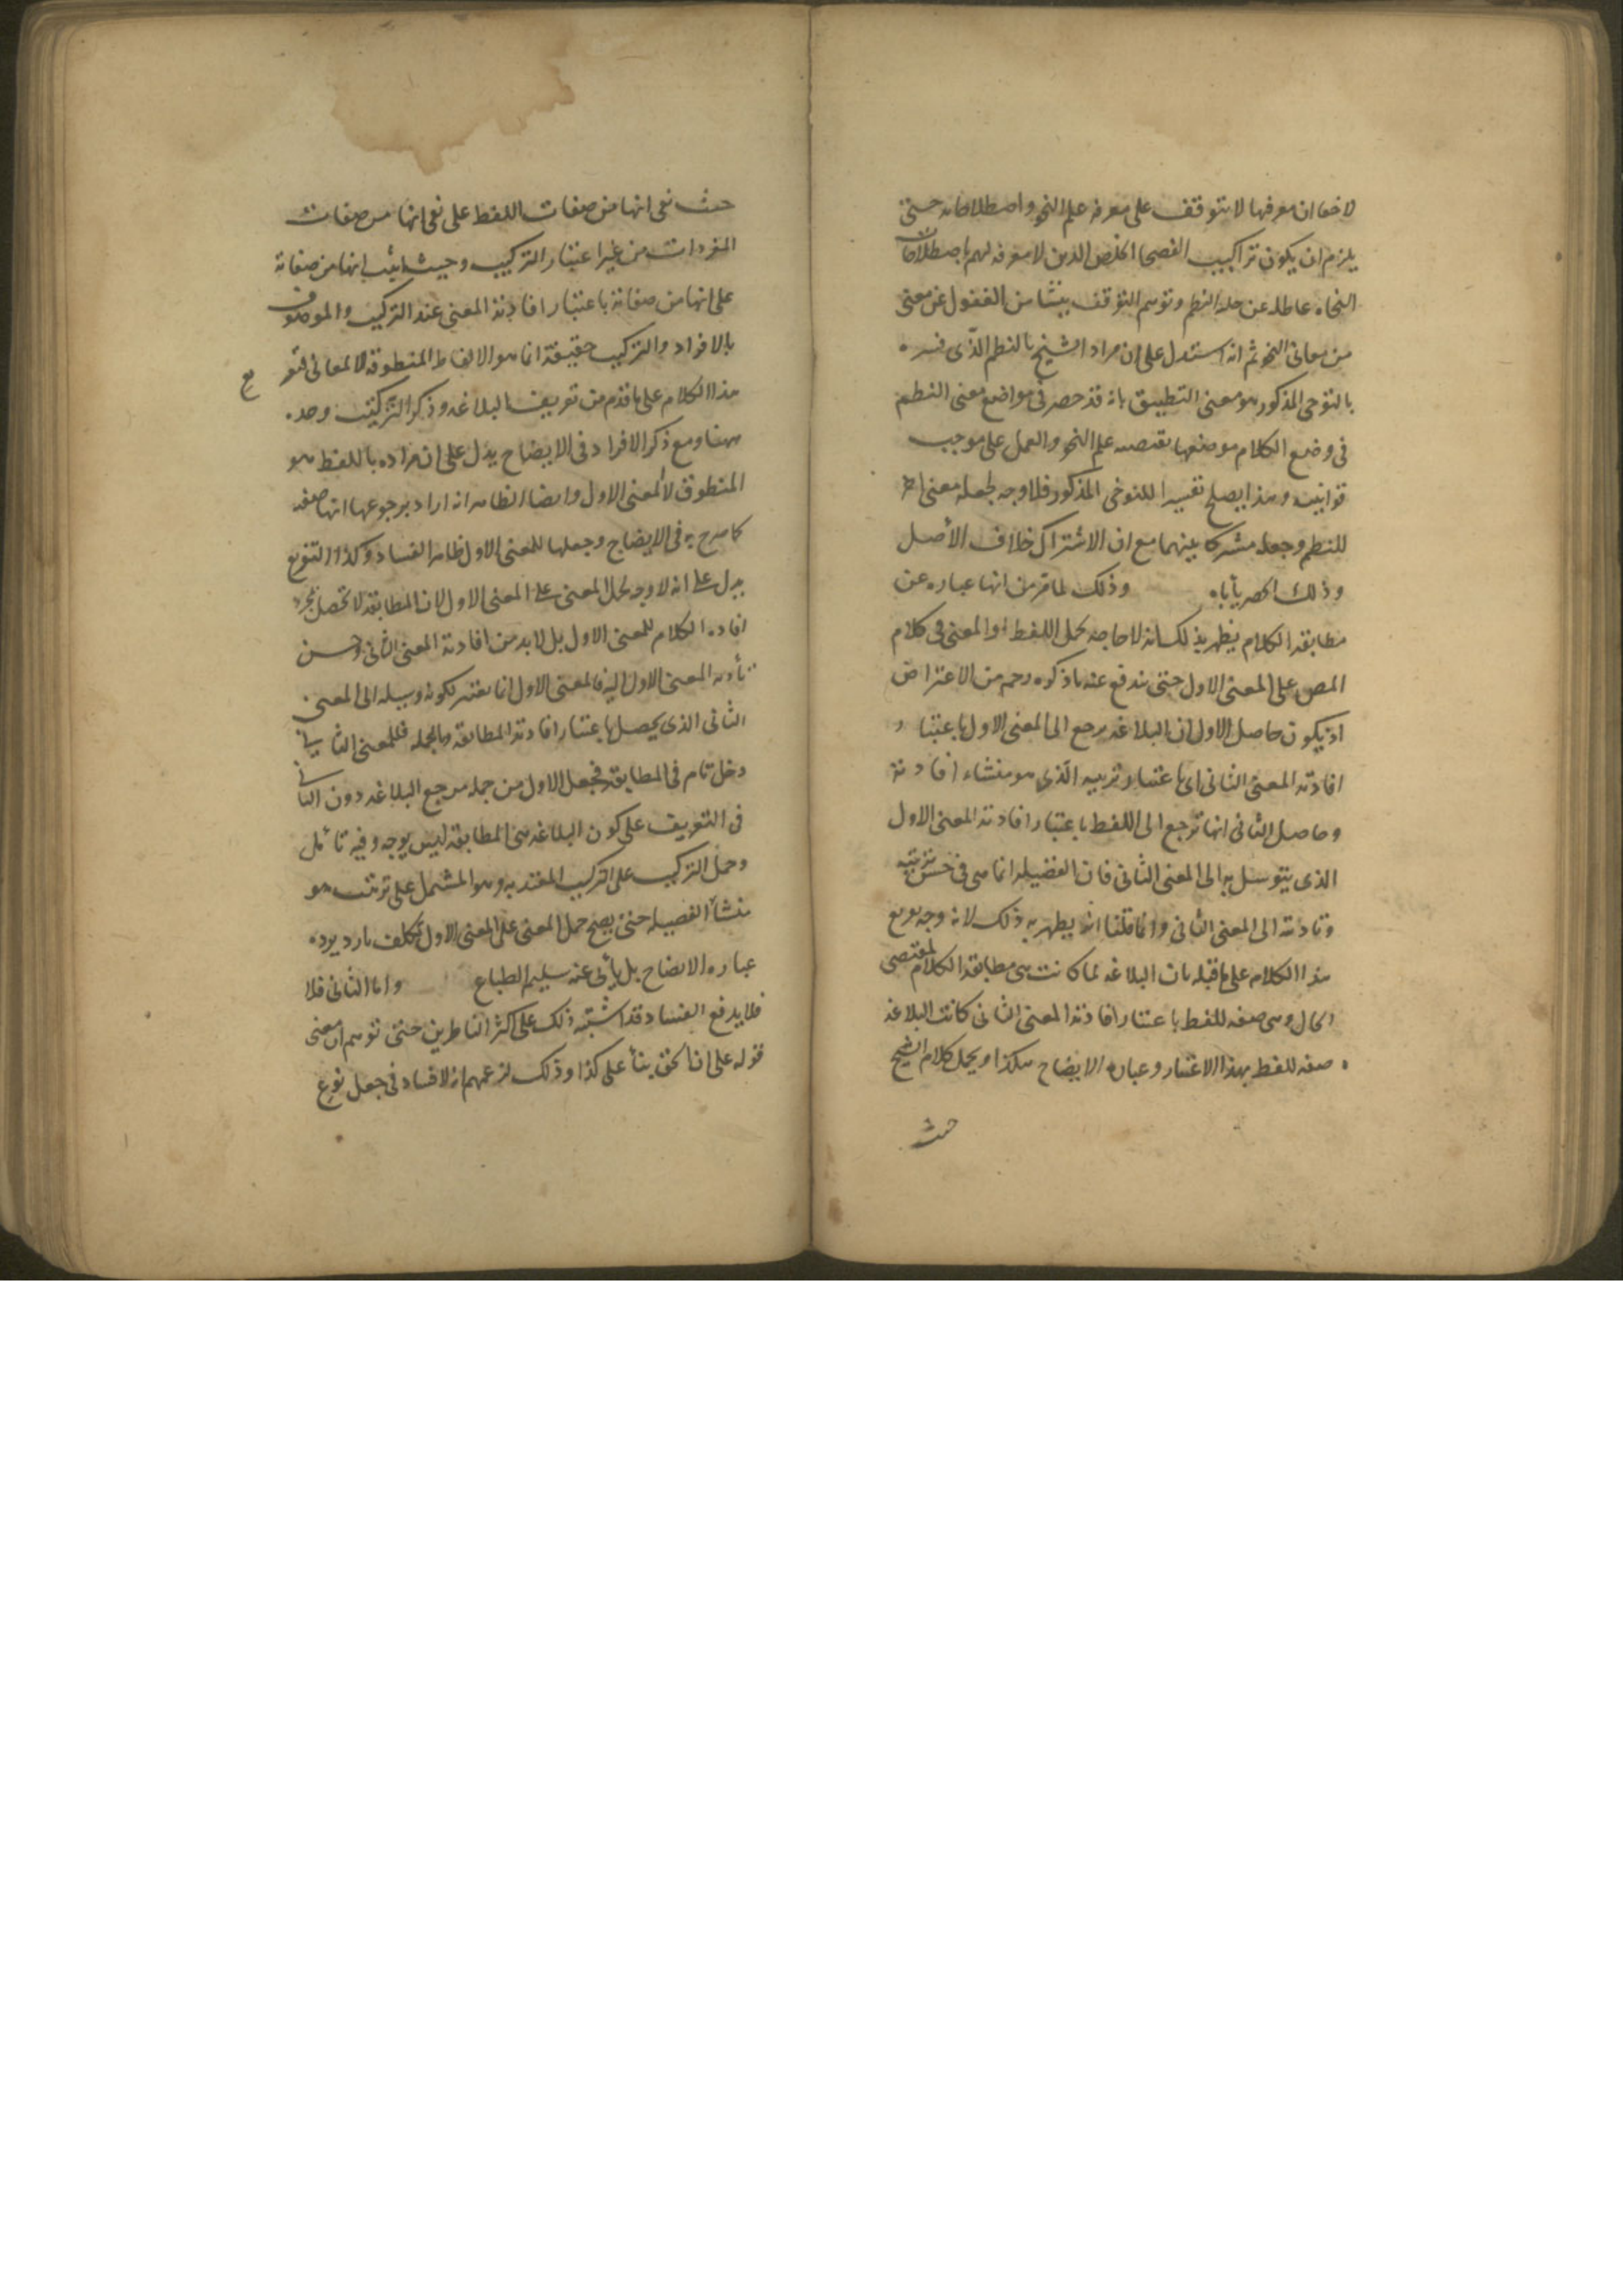 لا خفا ان معرفها لا يتوقف على معرفه علم النحو واصطلاحاته حتى
يلزم ان يكون تراكيب الفصحا الخلص الذين لا معرفه لهم باصطلاحات
النحاه عاطله عن حله النظم وتوهم التوقف ينشا من الغفول عن معنى
من معانى النحو ثم انه استدل على ان مراد الشيخ بالنظم الذى فسره
بالتوخى المذكور هو معنى التطبيق بانه قد حصر فى مواضع معنى النظم
فى وضع الكلام موضعها يقتضيه علم النحو والعمل على موجب
قوانينه وهذا يصلح تفسيرا للتوخى المذكور فلا وجه لجعله معنى اخر
للنظم وجعله مشتركا بينهما مع ان الاشتراك خلاف الأصل
وذلك الحصر يأباه وذلك لما مر من انها عباره عن
مطابقه الكلام يظهر بذلك انه لا حاجه لحمل اللفظ او المعنى فى كلام
المص على المعنى الاول حتى يندفع عنه ما ذكره رحمه من الاعتراض
اذ يكون حاصل الاول ان البلاغه يرجع الى المعنى الاول باعتبار
افادته المعنى الثانى اى باعتبار ترتيبه الذى هو منشاء افادته
وحاصل الثانى انها ترجع الى اللفظ باعتبار افادته المعنى الاول
الذى يتوسل به الى المعنى الثانى فان الفضيله انما هى فى حسن ترتيبه
وتاديته الى المعنى الثانى وانما قلنا انه يظهر به ذلك لانه وجه تفريع
هذا الكلام على ما قبله بان البلاغه لما كانت هى مطابقه الكلام لمقتضى
الحال وهى صفه للفظ باعتبار افادته المعنى الثانى كانت البلاغه
صفه للفظ بهذا الاعتبار وعباره الايضاح هكذا ويحمل كلام الشيخ
حيث
حيث نفى انها من صفات اللفظ على نفى انها من صفات
المفردات من غير اعتبار التركيب وحيث اثبت انها من صفاته
على انها من صفاته باعتبار افادته المعنى عند التركيب والموصوف
بالافراد والتركيب حقيقة انما هو الالفاظ المنطوقه لا المعانى فتفر
يع
هذا الكلام على ما قدم من تعريف البلاغه وذكر التركيب وحده
ههنا ومع ذكر الافراد فى الايضاح يدل على ان مراده باللفظ هو
المنطوق لا المعنى الاول وايضا الظاهر انه اراد برجوعها انها صفه
كما صرح به فى الايضاح وجعلها للمعنى الاول ظاهر الفساد وكذا التفريع
يدل على انه لا وجه لحمل المعنى على المعنى الاول لان المطابقه لا تحصل بمجرد
افاده الكلام للمعنى الاول بل لا بد من افادته المعنى الثانى وحسن
تأديه المعنى الاول اليه فالمعنى الاول انما يعتبر لكونه وسيله الى المعنى
الثانى الذى يحصل باعتبار افادته المطابقه وبالجمله فللمعنى الثانى
دخل تام فى المطابقه فجعل الاول من جمله مرجع البلاغه دون الثانى
فى التعريف على كون البلاغه هى المطابقه ليس بوجه وفيه تأمل
وحمل التركيب على التركيب المعتد به وهو المشتمل على ترتيب هو
منشأ الفضيله حتى يصح حمل المعنى على المعنى الاول تكلف بارد يرده
عباره الايضاح بل يأبى عنه سليم الطباع واما الثانى فلا
فلا يدفع الفساد قد اشتبه ذلك على اكثر الناظرين حتى توهم ان معنى
قوله على انا نحن بنأ على كذا وذلك لزعمهم انه لا فساد فى جعل نوع